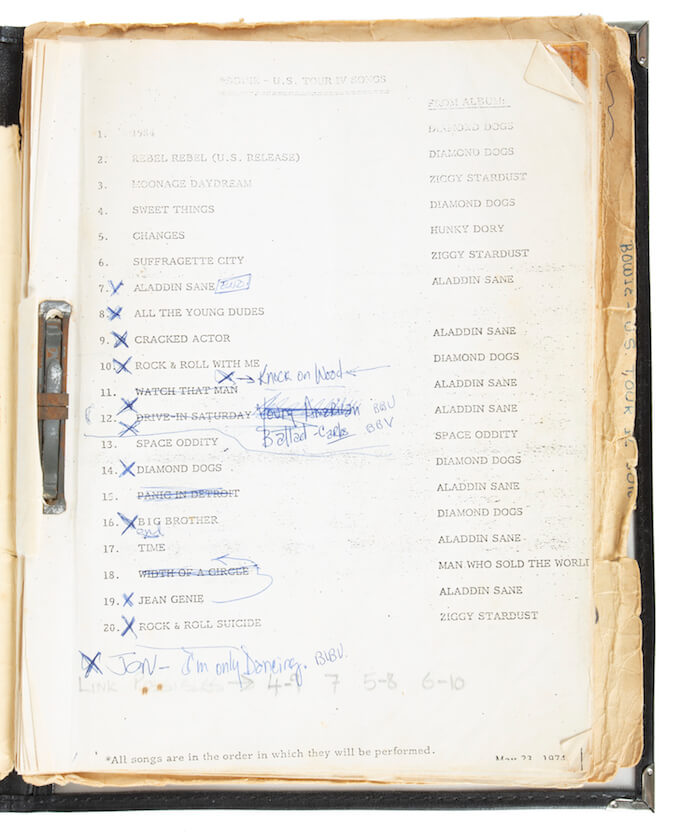 *BOWIE - U.S. TOUR IV SONGS
FROM ALBUM:
1. 1984 DIAMOND DOGS
2. REBEL REBEL (U.S. RELEASE) DIAMOND DOGS
3. MOONAGE DAYDREAM ZIGGY STARDUST
4. SWEET THINGS DIAMOND DOGS
5. CHANGES HUNKY DORY
6. SUFFRAGETTE CITY ZIGGY STARDUST
7. ALADDIN SANE ALADDIN SANE
8. ALL THE YOUNG DUDES
9. CRACKED ACTOR ALADDIN SANE
10. ROCK & ROLL WITH ME DIAMOND DOGS
Knock on Wood
11. WATCH THAT MAN ALADDIN SANE
12. DRIVE-IN SATURDAY Young American BBV ALADDIN SANE
Ballad - BBV
13. SPACE ODDITY SPACE ODDITY
14. DIAMOND DOGS DIAMOND DOGS
15. PANIC IN DETROIT ALADDIN SANE
16. BIG BROTHER DIAMOND DOGS
17. TIME ALADDIN SANE
18. WIDTH OF A CIRCLE MAN WHO SOLD THE WORLD
19. JEAN GENIE ALADDIN SANE
20. ROCK & ROLL SUICIDE ZIGGY STARDUST
I'm only Dancing.
LINK 4-9 7 5-8 6-10
*All songs are in the order in which they will be performed.
May 23, 1974
BOWIE - US TOUR